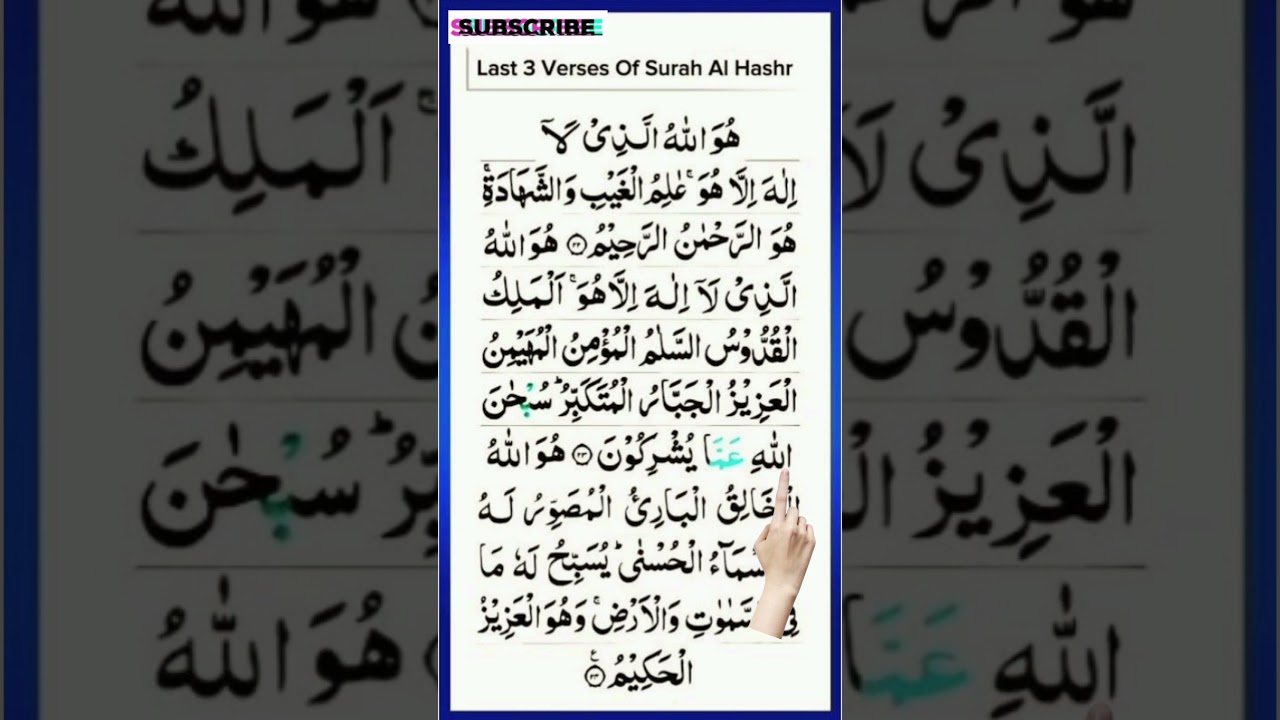 SUBSCRIBE
Last 3 Verses Of Surah Al Hashr
هُوَ اللّٰهُ الَّذِیْ لَاۤ
اِلٰهَ اِلَّا هُوَ ۚ عٰلِمُ الْغَیْبِ وَالشَّهَادَةِ ۚ
هُوَ الرَّحْمٰنُ الرَّحِیْمُ ۝۲۲ هُوَ اللّٰهُ
الَّذِیْ لَاۤ اِلٰهَ اِلَّا هُوَ ۚ اَلْمَلِكُ
الْقُدُّوْسُ السَّلٰمُ الْمُؤْمِنُ الْمُهَیْمِنُ
الْعَزِیْزُ الْجَبَّارُ الْمُتَكَبِّرُ ؕ سُبْحٰنَ
اللّٰهِ عَمَّا یُشْرِكُوْنَ ۝۲۳ هُوَ اللّٰهُ
الْخَالِقُ الْبَارِئُ الْمُصَوِّرُ لَهُ
الْاَسْمَآءُ الْحُسْنٰی ؕ یُسَبِّحُ لَهٗ مَا
فِی السَّمٰوٰتِ وَالْاَرْضِ ۚ وَهُوَ الْعَزِیْزُ
الْحَكِیْمُ ۝۲۴